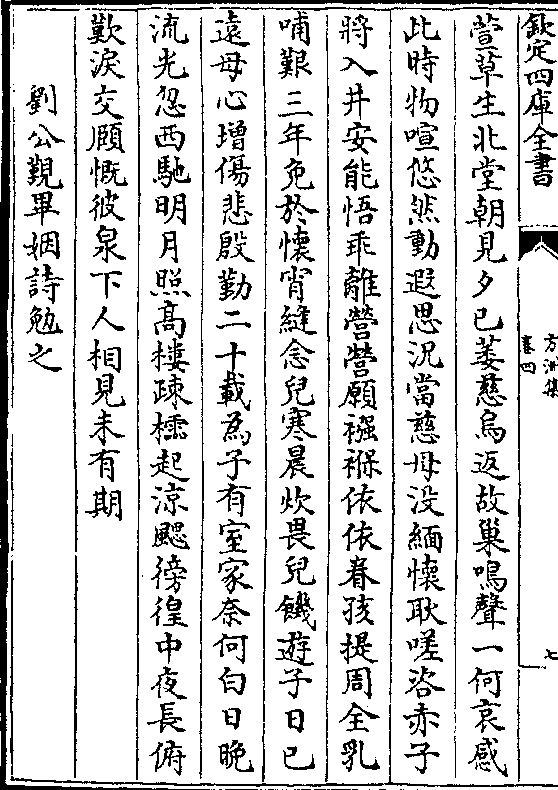 欽定四庫全書
方洲集
卷四
七
萱草生北堂朝見夕已萎慈烏返故巢鳴聲一何哀感
此時物喧悠然動遐思況當慈母没緬懷耿嗟咨赤子
將入井安能悟乖離營營願襁褓依依眷孩提周全乳
哺艱三年免於懷宵縫念兒寒晨炊畏兒饑遊子日已
遠母心增傷悲殷勤二十載為子有室家奈何白日晚
流光忽西馳明月照髙樓疎櫺起涼颸徬徨中夜長俯
歎淚交頥慨彼泉下人相見未有期
劉公覲畢姻詩勉之